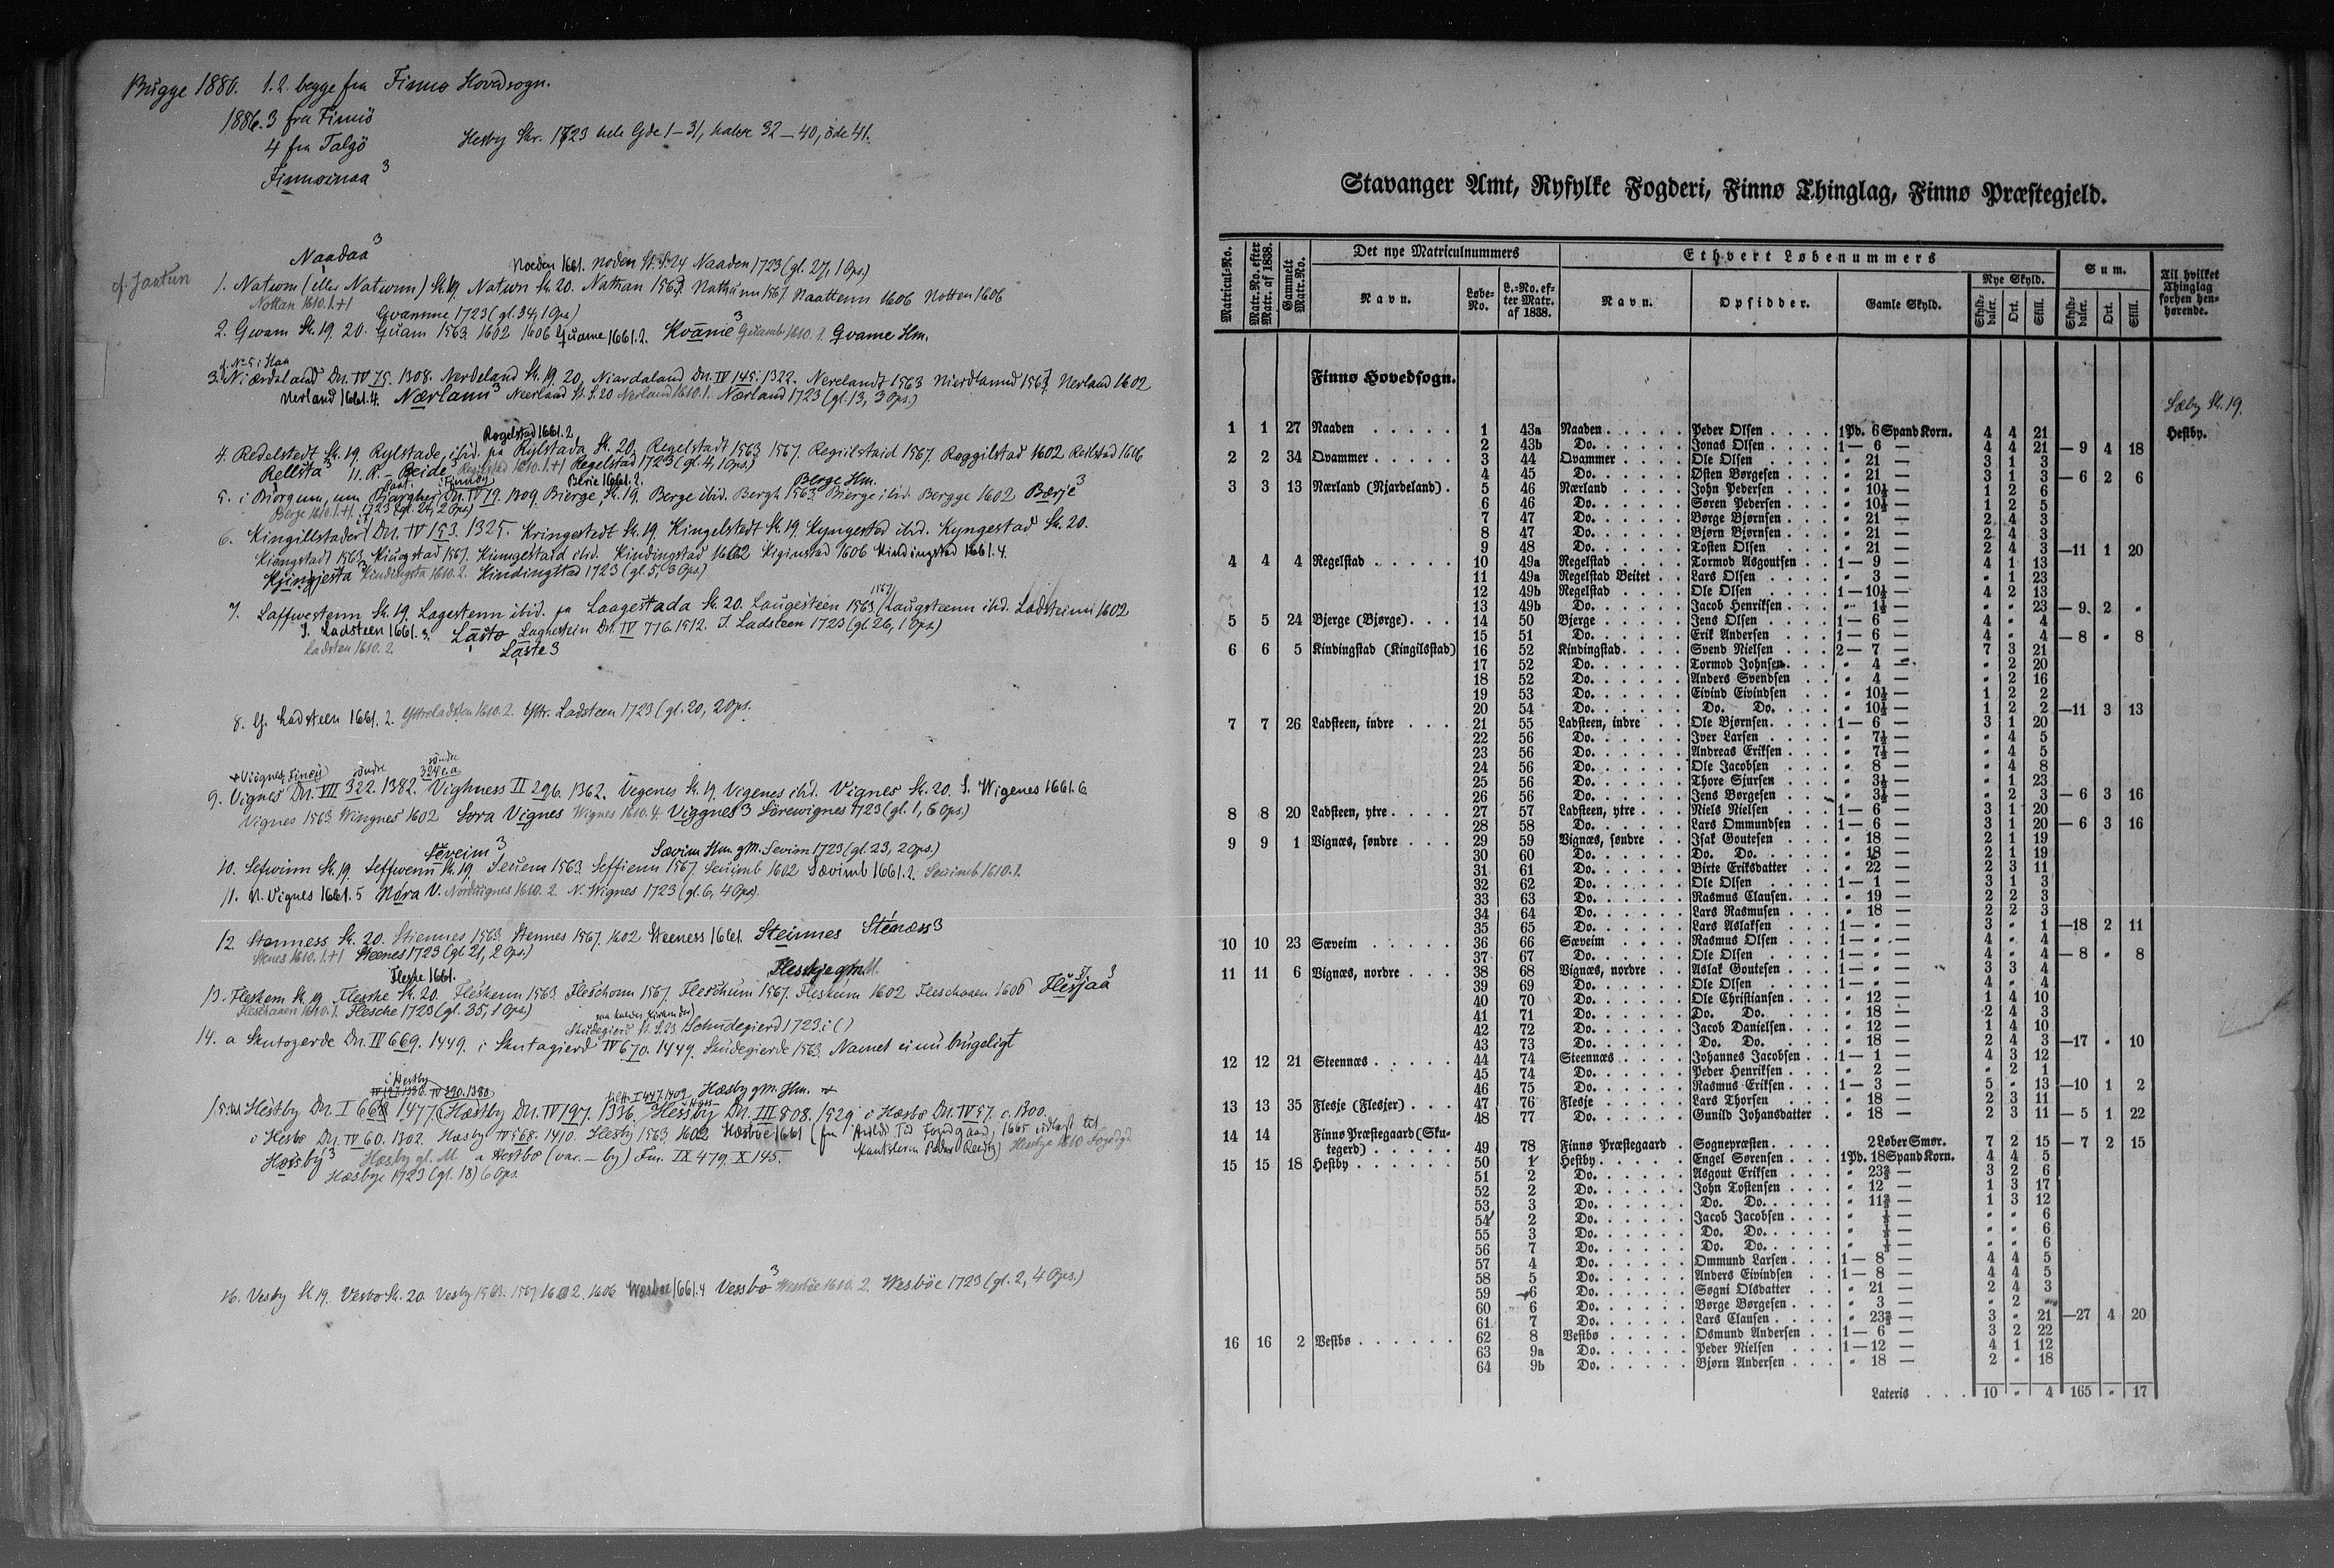 Brugge 1880. 1.2. begge fra Finnø Hovedsogn.
1886. 3 fra Finnö
4 fra Talgö
Hesby Skr. 1723 hele Gde 1–31, halve 32–40, öde 41.
Naadaa 3
cf. Jaatun
Noeden 1661. noden St. S. 24 Naaden 1723 (gl. 27, 1 Ops.)
1. Natwom (eller Natwnn) Sk. 19. Natwn Sk. 20. Nathan 1563. Nathunn 1567. Naattenn 1606 Notten 1606
Nottan 1610. 1. +1
Gvamme 1723 (gl. 34, 1 Ops)
2. Gwam Sk. 19. 20. Guam 1563. 1602 1606 Guame 1661. 2. Kvame 3 Guamb 1610. 1. Qvame Hm.
3. Niærdaland Dn. IV 75. 1308. Nerdeland Sk. 19. 20. Niardaland Dn. IV 145. 1322. Nerelandt 1563 Nierdlannd 1567. Nerland 1602
Nerland 1661. 4. Nærlann 3 Neerland St. S. 20 Nerland 1610. 1. Nærland 1723 (gl. 13, 3 Ops.)
Rogelstad 1661. 2
4. Redelstedt Sk. 19. Rylstade, ibid. pa Rylstada Sk. 20. Regelstadt 1563 1567. Regiilstaid 1567. Røggilstad 1602 Reilstad 1606
Rellsta 3 11. R - Beide 3 Regilstad 1610. 1. +1 Regelstad 1723 (gl. 4, 1 Ops)
Berie 1661. 2. Berge Hm.
5. i Biörgum, um Biargher Dn. IV 79. 1309. Bierge Sk. 19. Berge ibid. Bergh 1563 Bierge ibid. Bergge 1602 Bærje 3
Berge 1610. 1. +1. 1723 (gl. 24, 2 Ops)
6. Kingillstader Dn. IV 153. 1325. Kringestedt Sk. 19. Kingelstedt Sk. 19. Kyngested ibid. Kyngestad Sk. 20.
Kiengstadt 1563. Kiungstad 1567. Kiemgestaid ibid. Kindingstad 1602 Kiginstad 1606 Kieldingstad 1661. 4.
Kjingjesta 3 Kindingsta 1610. 2. Kindingstad 1723 (gl. 5, 3 Ops)
7. Laffwestenn Sk. 19. Lagestenn ibid. pa Laagestada Sk. 20. Laugesteen 1563 Laugsteenn ibd. Ladsteinn 1602
J. Ladsteen 1661. 3. Låsto Laghestein Dn. IV 776. 1512. J. Ladsteen 1723 (gl. 26, 1 Ops)
Ladsten 1610. 2. Låste 3
8. Y. Ladsteen 1661. 2. Yttreladsten 1610. 2. Yttr. Ladsteen 1723 (gl. 20, 2 Ops.
9. Vignes Dn. VII 322. 1382. Vighness II 296. 1362. Vegenes Sk. 19. Vigenes ibid. Vignes Sk. 20. S. Wigenes 1661. 6
Vignes 1563. Wingnes 1602 Sora Vignes Wignes 1610. 4. Viggnes 3 Sörewignes 1723 (gl. 1, 6 Ops.)
Seveim 3 Sævim Hm. gM. Sevim 1723 (gl. 23, 2 Ops.)
10. Sefwinn Sk. 19. Seffwenn Sk. 19. Seuenn 1563. Seffienn 1567. Seuimb 1602 Sævimb 1661. 2. Seuimb 1610. 1.
11. N. Vignes 1661. 5 Nora V. Nordvignes 1610. 2. N. Wignes 1723 (gl. 6, 4 Ops).
12. Stenness Sk. 20. Stiennes 1563. Stennes 1567. 1602 Steeness 1661. Steinnes Stenæss 3
Stenes 1610. 1. +1 Steenes 1723 (gl. 21, 2 Ops.)
Fleshe 1661. Fleskje gm. M.
13. Fleskem Sk. 19. Fleske Sk. 20. Fleskenn 1563. Fleschom 1567. Fleschum 1567. Fleskum 1602 Fleschaaen 1606 Flesjaa 3
Fleschaaen 1610. 1. Flesche 1723 (gl. 35, 1 Ops)
Skudegierd St. S. 23. Schudegierd 1723. i ()
14. a Skutogerde Dn. IV 669. 1449. i Skutagierd IV 670. 1449. Skudegierde 1563. Navnet ei nu brugeligt
i Hestby
15. Hestby Dn. I 668 1477. Hæstby Dn. IV 197. 1336. Hessby Dn. III 808. 1529. i Hæsbø Dn. IV 57. c. 1300.
i Hesbø Dn. IV 60. 1302. Hæsby IV 568. 1410. Hesby 1563. 1602 Hesbøe 1661
Hæsby 3 Hæsby gl. M. a Hestbø (var. – by) Fm. IX 479. X 145.
Hæsbye 1723 (gl. 18) 6 Ops.
16. Vesby Sk. 19. Vesbø Sk. 20. Vesby 1563. 1567. 1602. 1606 Wesbøe 1661. 4 Vessbø 3 Wesbøe 1610. 2. Wesböe 1723 (gl. 2, 4 Ops.)
Stavanger Amt, Ryfylke Fogderi, Finnø Thinglag, Finnø Præstegjeld.
Matricul-No. | Matr.-No. efter Matr. af 1838. | Gammelt Matr.-No. | Det nye Matriculnummers | Ethvert Løbenummers | Sum. | Til hvilket Thinglag forhen henhørende.
Navn. | Løbe-No. | L.-No. efter Matr. af 1838. | Navn. | Opsidder. | Gamle Skyld. | Nye Skyld. | Skylddaler. | Ort. | Skill.
Finnø Hovedsogn.
Sæby Sk. 19.
1 1 27 Naaden 1 43a Naaden Peder Olsen 1 Pd. 6 Spand Korn. 4 4 21 Hestby.
2 43b Do. Jonas Olsen 1 — 6 — 4 4 21 — 9 4 18
2 2 34 Qvammer 3 44 Qvammer Ole Olsen " 21 — 3 1 3
4 45 Do. Østen Børgesen " 21 — 3 1 3 — 6 2 6
3 3 13 Nærland (Njardeland) 5 46 Nærland John Pedersen " 10½ — 1 2 6
6 46 Do. Søren Pedersen " 10½ — 1 2 5
7 47 Do. Børge Bjørnsen " 21 — 2 4 3
8 47 Do. Bjørn Bjørnsen " 21 — 2 4 3
9 48 Do. Tosten Olsen " 21 — 2 4 3 — 11 1 20
4 4 4 Regelstad 10 49a Regelstad Tormod Asgoutsen 1 — 9 — 4 1 13
11 49a Regelstad Beitet Lars Olsen " 3 — " 1 23
12 49b Regelstad Ole Olsen 1 — 10½ — 4 2 13
13 49b Do. Jacob Henriksen " 1½ — " " 23 — 9 2 "
5 5 24 Bjerge (Bjørge) 14 50 Bjerge Jens Olsen 1 — 6 — 4 " 4
15 51 Do. Erik Andersen 1 — 6 — 4 " 4 — 8 " 8
6 6 5 Kindingstad (Kingilsstad) 16 52 Kindingstad Svend Nielsen 2 — 7 — 7 3 21
17 52 Do. Tormod Johnsen " 4 — " 2 20
18 52 Do. Anders Svendsen " 4 — " 2 16
19 53 Do. Eivind Eivindsen " 10½ — 1 2 2
20 54 Do. Do. Do. " 10½ — 1 2 2 — 11 3 13
7 7 26 Ladsteen, indre 21 55 Ladsteen, indre Ole Bjørnsen 1 — 6 — 3 1 20
22 56 Do. Iver Larsen " 7½ — " 4 5
23 56 Do. Andreas Eriksen " 7½ — " 4 5
24 56 Do. Ole Jacobsen " 8 — " 4 8
25 56 Do. Thore Sjursen " 3½ — " 1 23
26 56 Do. Jens Børgesen " 3½ — " 2 3 — 6 3 16
8 8 20 Ladsteen, ytre 27 57 Ladsteen, ytre Niels Nielsen 1 — 6 — 3 1 20
28 58 Do. Lars Ommundsen 1 — 6 — 3 1 20 — 6 3 16
9 9 1 Vignæs, søndre 29 59 Vignæs, søndre Isak Goutesen " 18 — 2 1 19
30 60 Do. Do. Do. " 18 — 2 1 19
31 61 Do. Birte Eriksdatter " 22 — 2 3 11
32 62 Do. Ole Olsen 1 — 1 — 3 1 3
33 63 Do. Rasmus Clausen " 19 — 2 2 3
34 64 Do. Lars Rasmusen " 18 — 2 2 3
35 65 Do. Lars Aslaksen 1 — " — 3 " 1 — 18 2 11
10 10 23 Sæveim 36 66 Sæveim Rasmus Olsen 1 — " — 4 " 4
37 67 Do. Ole Olsen 1 — " — 4 " 4 — 8 " 8
11 11 6 Vignæs, nordre 38 68 Vignæs, nordre Aslak Goutesen 1 — " — 3 3 4
39 69 Do. Ole Olsen 1 — " — 4 " 4
40 70 Do. Ole Christiansen " 12 — 1 4 10
41 71 Do. Do. Do. " 18 — 2 4 3
42 72 Do. Jacob Danielsen " 12 — 1 4 10
43 73 Do. Do. Do. " 18 — 2 4 3 — 17 " 10
12 12 21 Steennæs 44 74 Steennæs Johannes Jacobsen 1 — 1 — 4 3 12
45 74 Do. Peder Henriksen " 2 — " 2 1
46 75 Do. Rasmus Eriksen 1 — 3 — 5 " 13 — 10 1 2
13 13 35 Flesje (Flesjer) 47 76 Flesje Lars Thorsen " 18 — 2 3 11
48 77 Do. Gunild Johansdatter " 18 — 2 3 11 — 5 1 22
14 14 Finnø Præstegaard (Skutegerd) 49 78 Finnø Præstegaard Sognepræsten 2 Løber Smør. 7 2 15 — 7 2 15
15 15 18 Hestby 50 1 Hestby Engel Sørensen 1 Pd. 18 Spand Korn. 4 4 5
51 2 Do. Asgout Eriksen " 23⅔ — 3 2 6
52 2 Do. John Tostensen " 12 — 1 3 17
53 3 Do. Do. Do. " 11⅔ — 1 3 12
54 2 Do. Jacob Jacobsen " ⅓ — " " 6
55 3 Do. Do. Do. " ⅓ — " " 6
56 7 Do. Do. Do. " ⅓ — " " 6
57 4 Do. Ommund Larsen 1 — 8 — 4 4 5
58 5 Do. Anders Eivindsen 1 — 8 — 4 4 5
59 6 Do. Søgni Olsdatter " 21 — 2 4 3
60 6 Do. Børge Børgesen " 3 — " 2 "
61 7 Do. Lars Clausen " 23⅔ — 3 " 21 — 27 4 20
16 16 2 Vestbø 62 8 Vestbø Osmund Andersen 1 — 6 — 3 2 22
63 9a Do. Peder Nielsen 1 — 12 — 4 1 12
64 9b Do. Bjørn Andersen " 18 — 2 " 18
Lateris 10 " 4 165 " 17